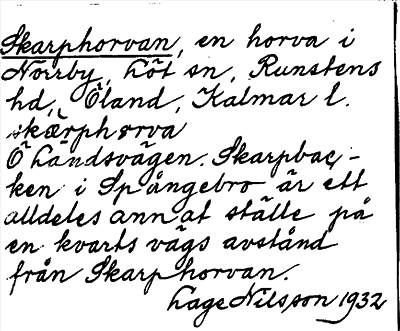 Skarphorvan, en horva i
Norrby, Löt sn, Runstens
hd, Öland, Kalmar l.
skärphorva
Ö Landsvägen. Skarpbac-
ken i Spångebro är ett
alldeles annat ställe på
en kvarts vägs avstånd
från Skarphorvan.
Lage Nilsson 1932